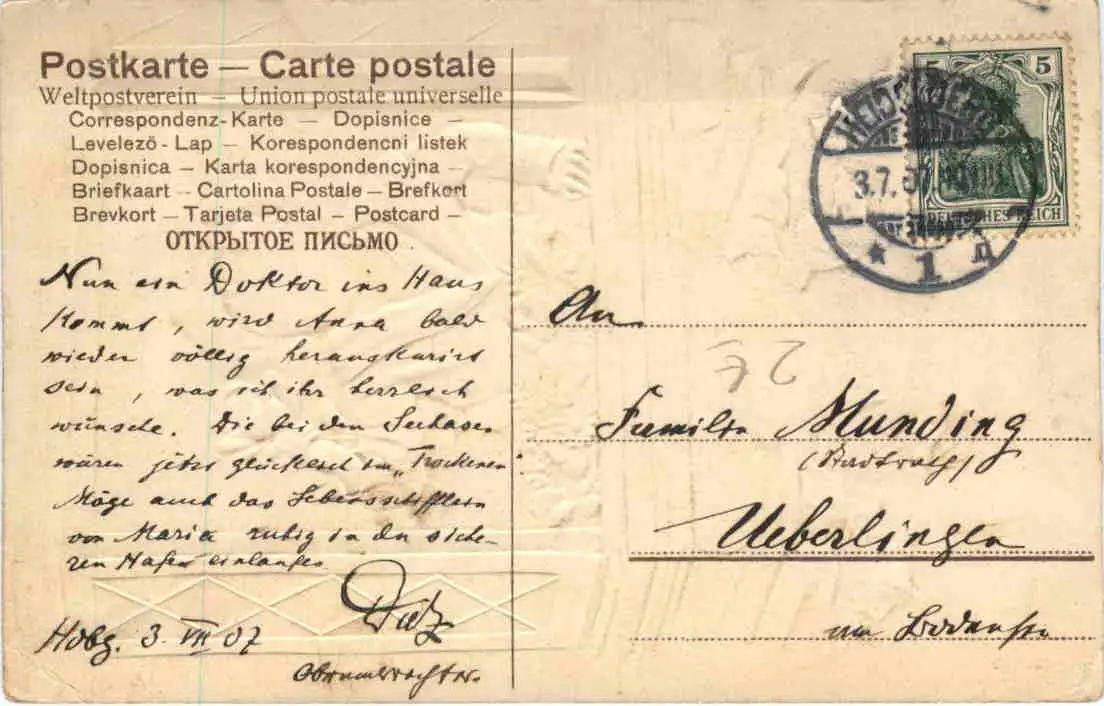 Postkarte — Carte postale
Weltpostverein — Union postale universelle
Correspondenz-Karte — Dopisnice —
Levelező-Lap — Korespondencni listek
Dopisnica — Karta korespondencyjna —
Briefkaart — Cartolina Postale — Brefkort
Brevkort — Tarjeta Postal — Postcard —
ОТКРЫТОЕ ПИСЬМО
Nun ein Doktor ins Haus
kommt, wird Anna bald
wieder völlig herauskurirt
sein, was ich ihr herzlich
wünsche. Die bei den Seehasen
wären jetzt glücklich im „Trockenen“.
Möge auch das Lebensschifflein
von Maria ruhig in den siche-
ren Hafen einlaufen
Dietz
Hdbg. 3. VII 07
5 5
DEUTSCHES REICH
HEIDELBERG
3.7.07
* 1 d
An
Familie Munding
(Stadtrath)
Ueberlingen
am Bodensee